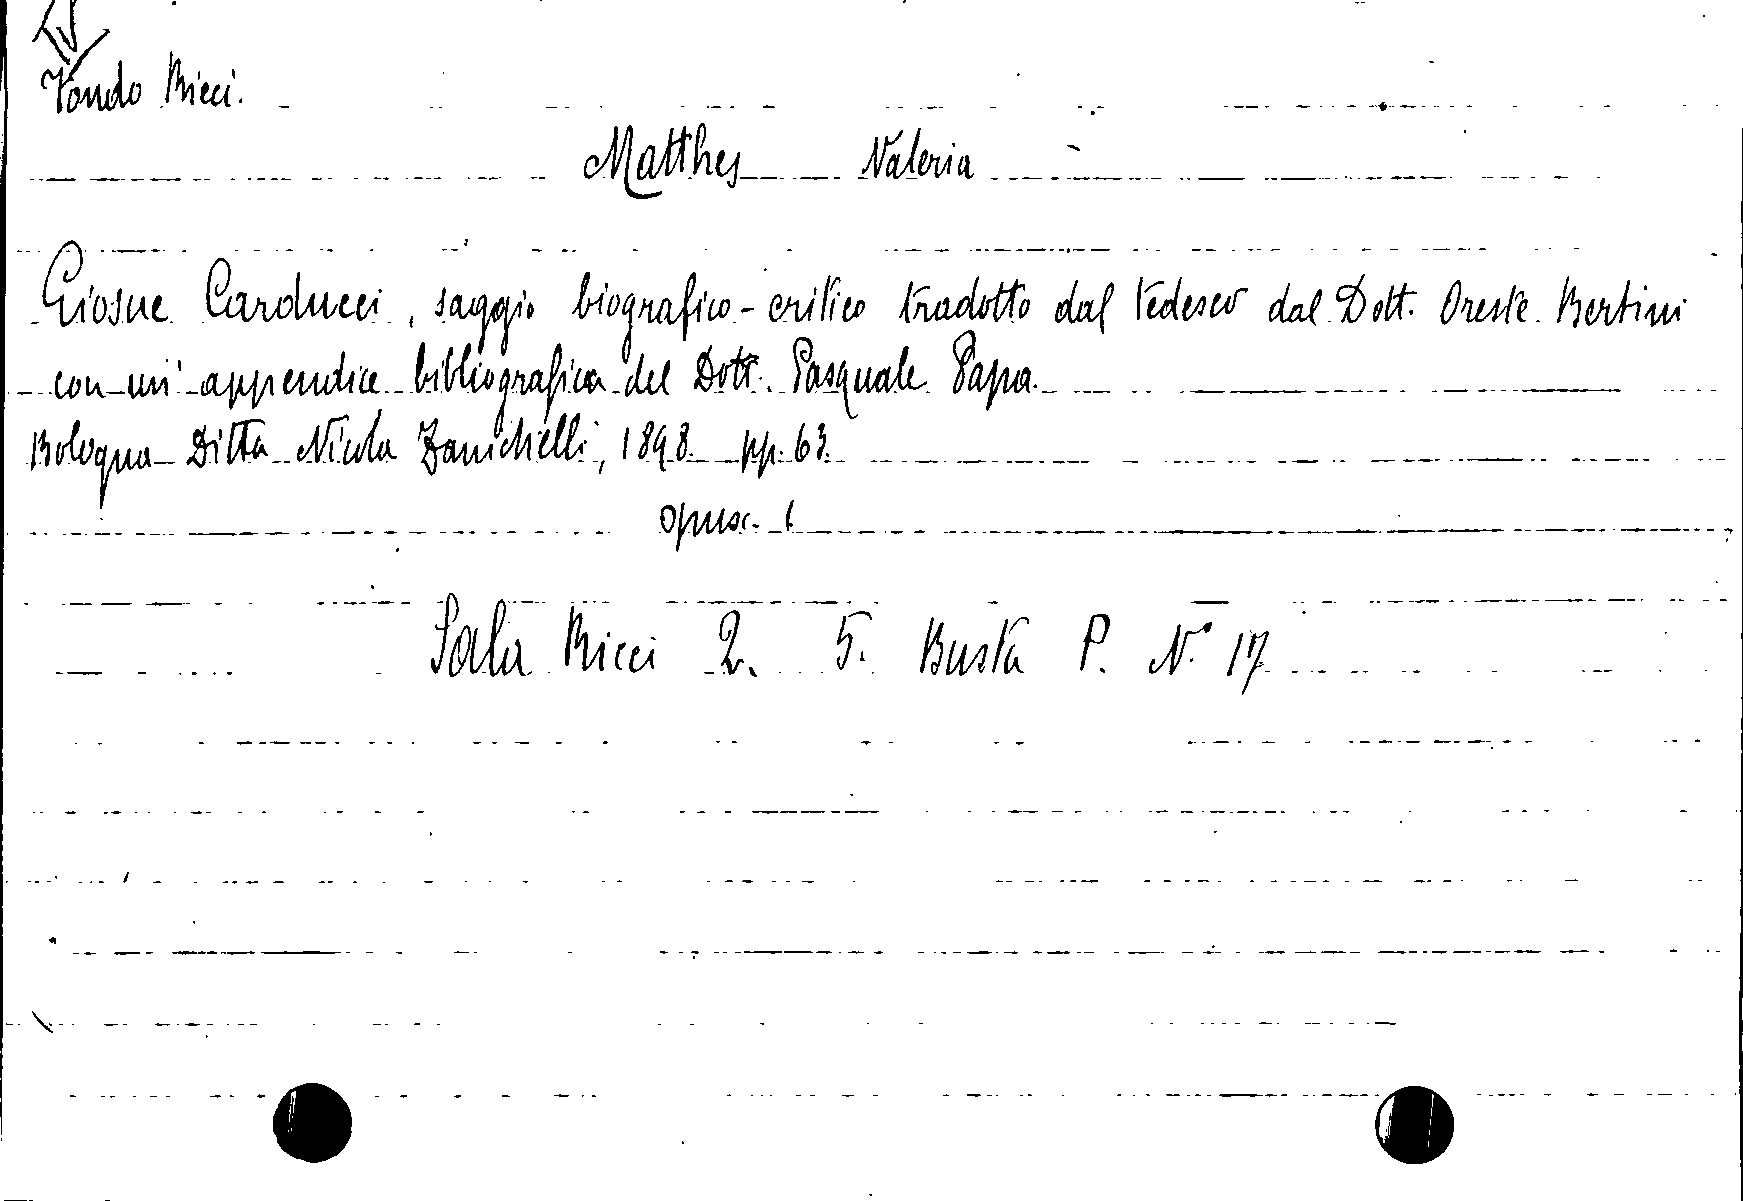 IV
Fondo Ricci.
Matthes Valeria
Giosue Carducci, saggio biografico-critico tradotto dal tedesco dal Dott. Oreste Bertini
con un' appendice bibliografica del Dott. Pasquale Papa.
Bologna Ditta Nicola Zanichelli, 1898 pp. 63.
opusc. 1
Sala Ricci 2. 5. Busta P. N.° 17